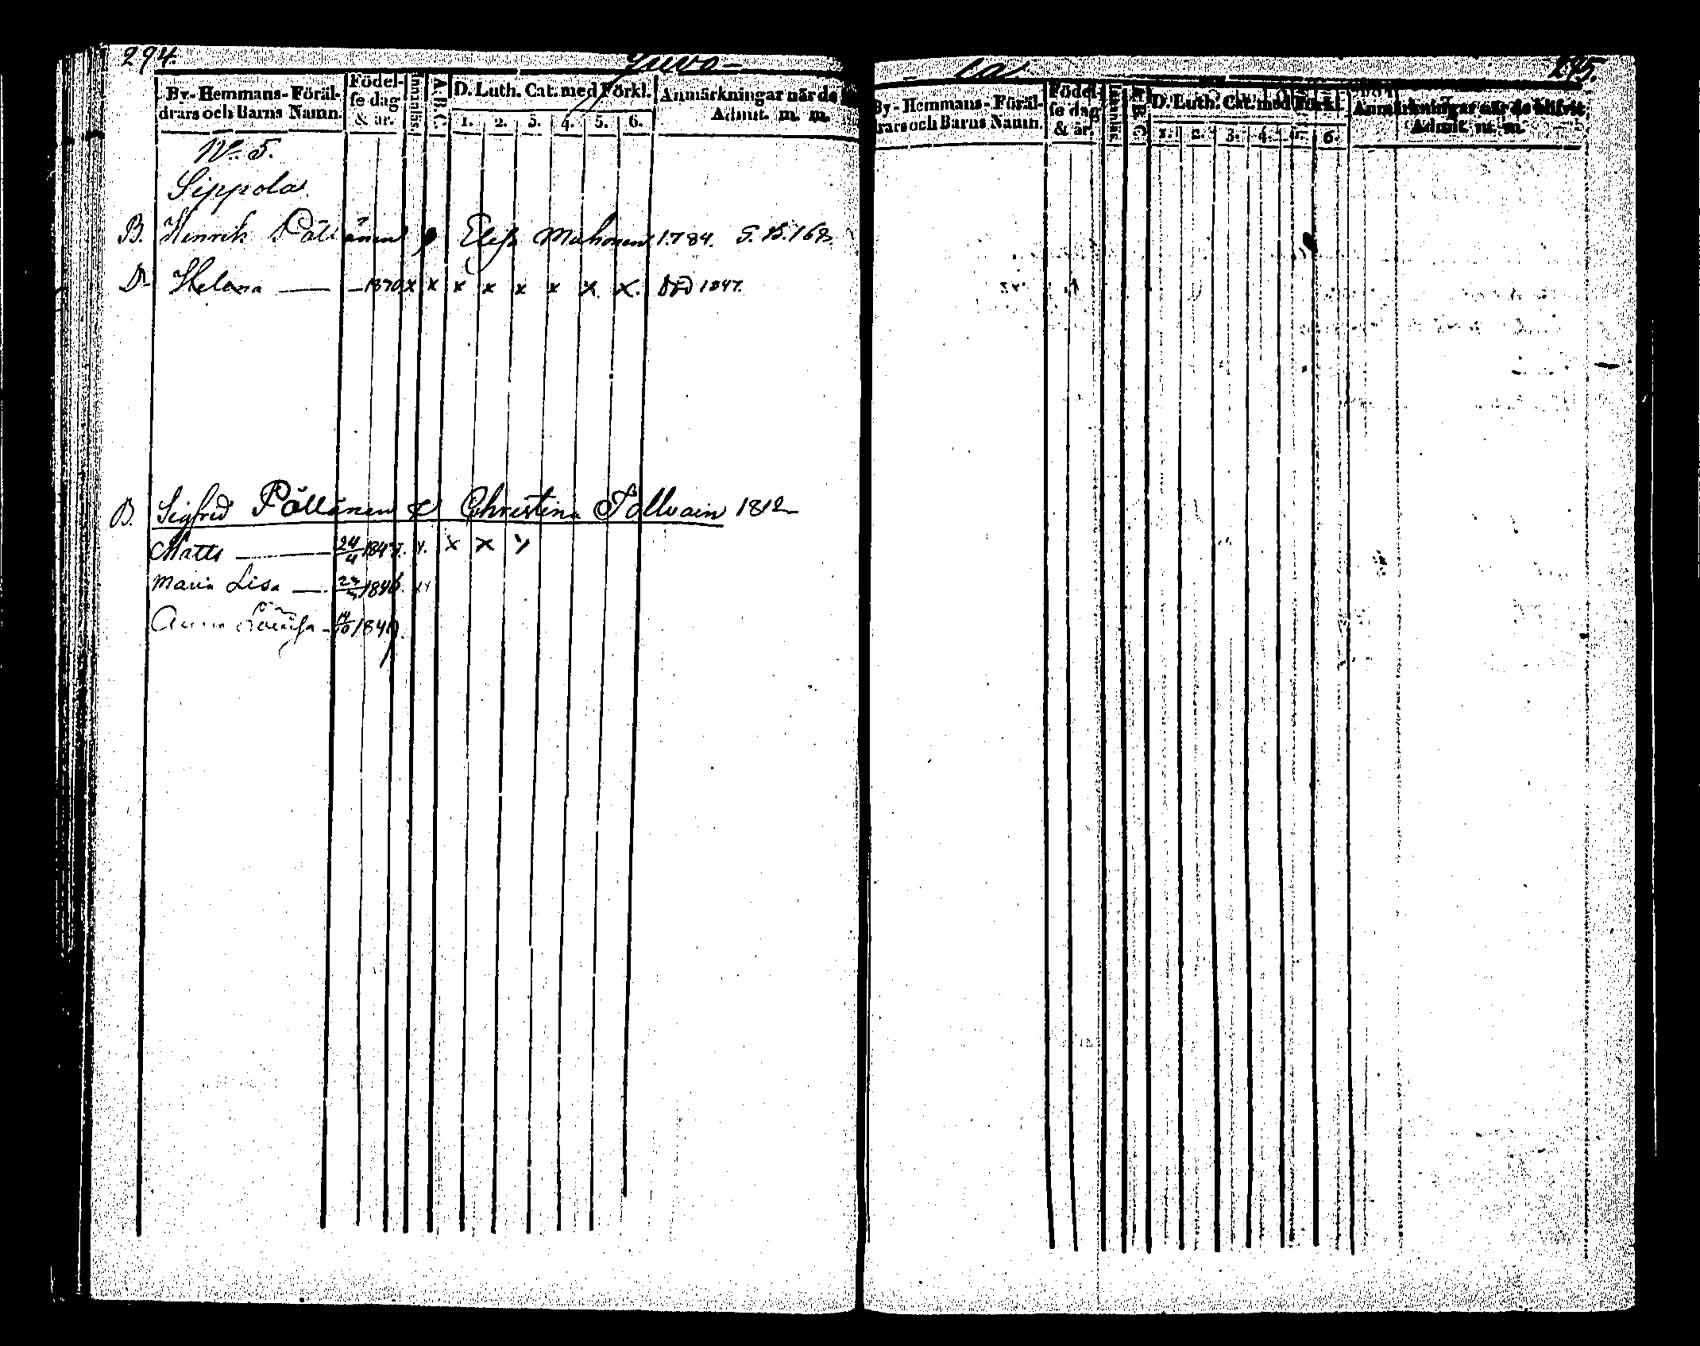 294.
Juvo-
By- Hemmans- Föräl-
drars och Barns Namn.
Födel-
se dag
& år.
Innanläs.
A. B. C.
D. Luth. Cat. med Förkl.
1. 2. 3. 4. 5. 6.
Anmärkningar när de
Admit. m. m.
No. 5.
Sippola
B. Henrik Pöllänen & Elisa Muhonen 1784. S. B. 168.
Dr Helena — 1830 x x x x x x x x Död 1847.
B. Sigfred Pöllänen & Christina Tollvain 1812
Matts — 24/4 1843. x x x
Maria Lisa — 1846.
Anna Lovisa - 14/10 1849.
- la
295.
By- Hemmans- Föräl-
drars och Barns Namn.
Födel-
se dag
& år.
Innanläs.
A. B. C.
D. Luth. Cat. med Förkl.
1. 2. 3. 4. 5. 6.
Anmärkningar när de blifvit
Admit. m. m.